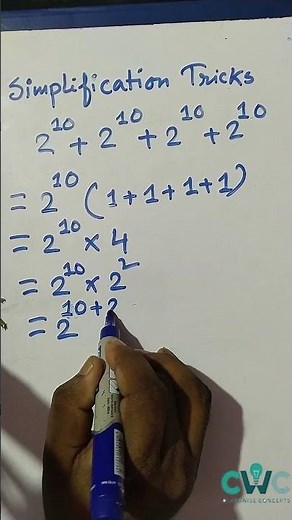 Simplification Tricks
2¹⁰ + 2¹⁰ + 2¹⁰ + 2¹⁰
= 2¹⁰ (1+1+1+1)
= 2¹⁰ × 4
= 2¹⁰ × 2²
= 2¹⁰⁺²
CWC